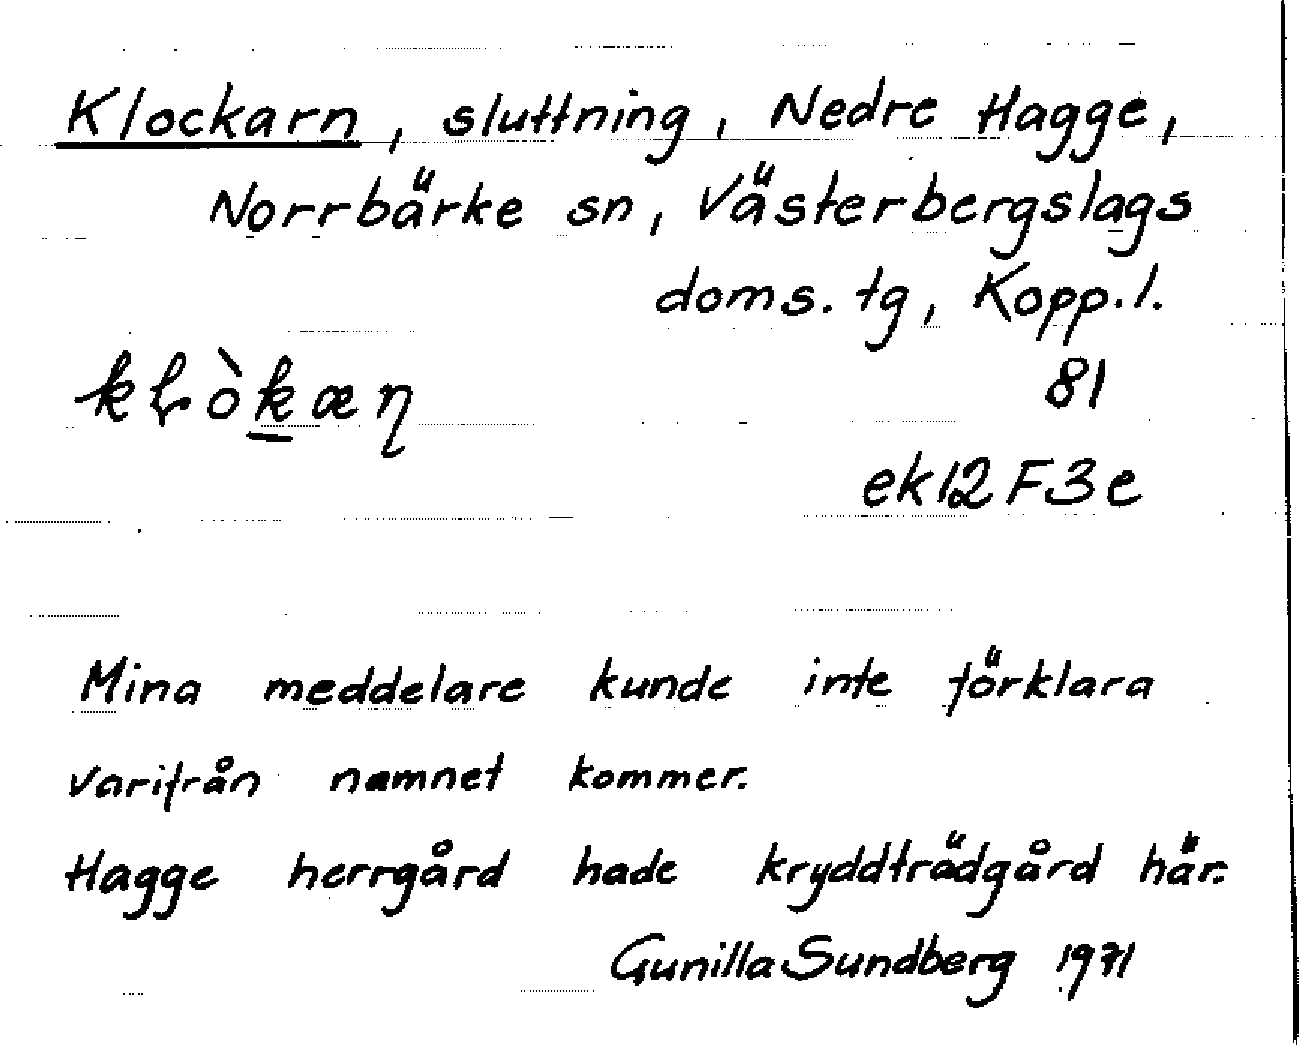 Klockarn, sluttning, Nedre Hagge,
Norrbärke sn, Västerbergslags
doms. tg, Kopp.l.
81
ek12F3e
Mina meddelare kunde inte förklara
varifrån namnet kommer.
Hagge herrgård hade kryddträdgård här.
Gunilla Sundberg 1971